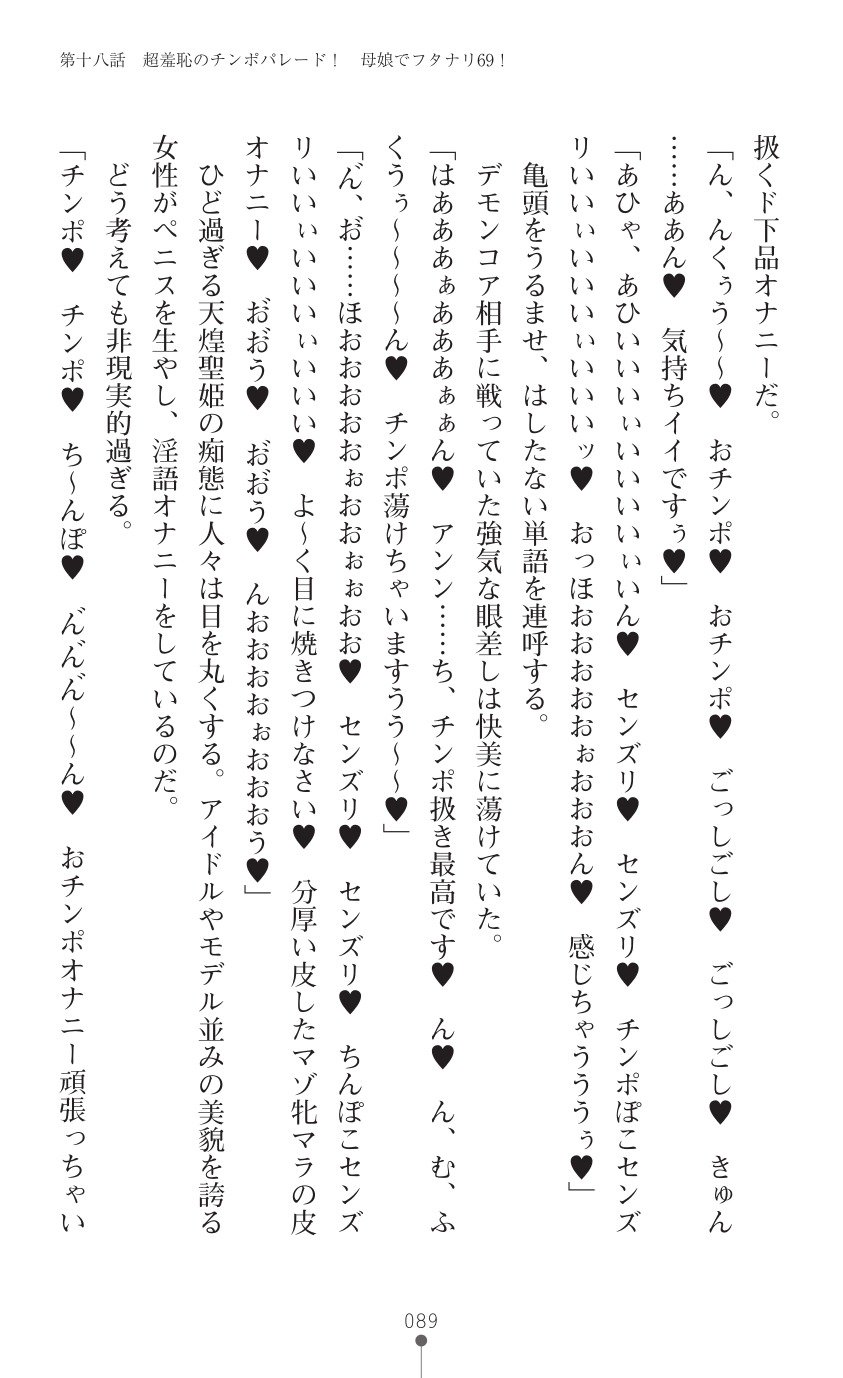 第十八話　超羞恥のチンポパレード！　母娘でフタナリ69！
扱くド下品オナニーだ。
「ん、んくぅう～～♥　おチンポ♥　おチンポ♥　ごっしごし♥　ごっしごし♥　きゅん
……ああん♥　気持ちイイですぅ♥」
「あひゃ、あひいいいぃいいいいぃいん♥　センズリ♥　センズリ♥　チンポぽこセンズ
リいいぃいいいいぃいいいッ♥　おっほおおおおおぉおおおん♥　感じちゃうううぅ♥」
　亀頭をうるませ、はしたない単語を連呼する。
　デモンコア相手に戦っていた強気な眼差しは快美に蕩けていた。
「はあああぁあああぁぁん♥　アンン……ち、チンポ扱き最高です♥　ん♥　ん、む、ふ
くうぅ～～～～ん♥　チンポ蕩けちゃいますうう～～♥」
「ん゛、お゛……ほおおおおおおぉおおぉぉおお♥　センズリ♥　センズリ♥　ちんぽこセンズ
リいいぃいいいいぃいいい♥　よ～く目に焼きつけなさい♥　分厚い皮したマゾ牝マラの皮
オナニー♥　お゛お゛う♥　お゛お゛う♥　んおおおおぉおおおう♥」
　ひど過ぎる天煌聖姫の痴態に人々は目を丸くする。アイドルやモデル並みの美貌を誇る
女性がペニスを生やし、淫語オナニーをしているのだ。
　どう考えても非現実的過ぎる。
「チンポ♥　チンポ♥　ち～んぽ♥　ん゛ん゛ん゛～～ん♥　おチンポオナニー頑張っちゃい
089